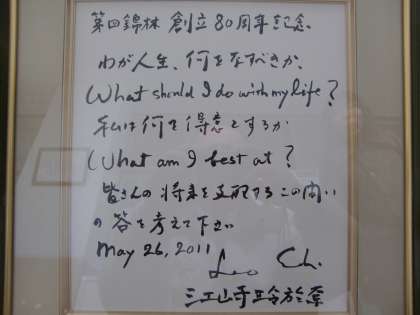 第四錦林 創立80周年記念、
わが人生、何をなすべきか、
What should I do with my life?
私は何を得意とするか
What am I best at?
皆さんの将来を支配するこの問い
の答を考えて下さい
May 26, 2011
Leo
江 玲於奈